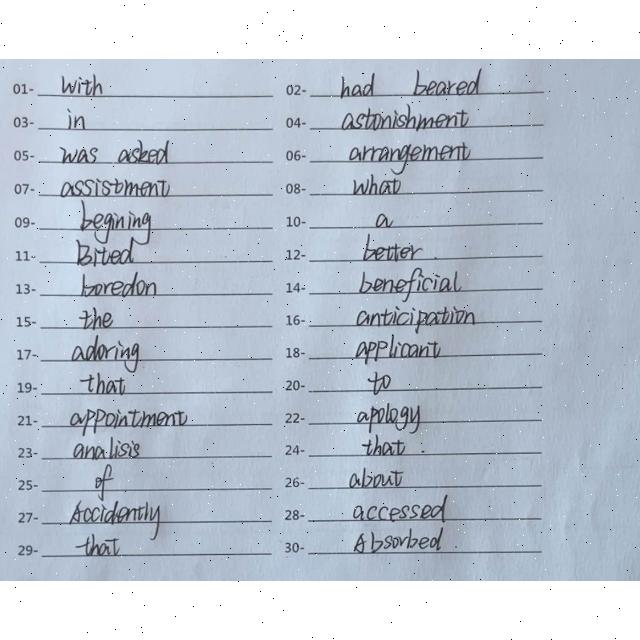 01- with 02- had beared
03- in 04- astonishment
05- was asked 06- arrangement
07- assistment 08- what
09- begining 10- a
11- Bited 12- better
13- boredon 14- beneficial
15- the 16- anticipation
17- adoring 18- applicant
19- that 20- to
21- appointment 22- apology
23- analisis 24- that
25- of 26- about
27- Accidently 28- accessed
29- that 30- Absorbed